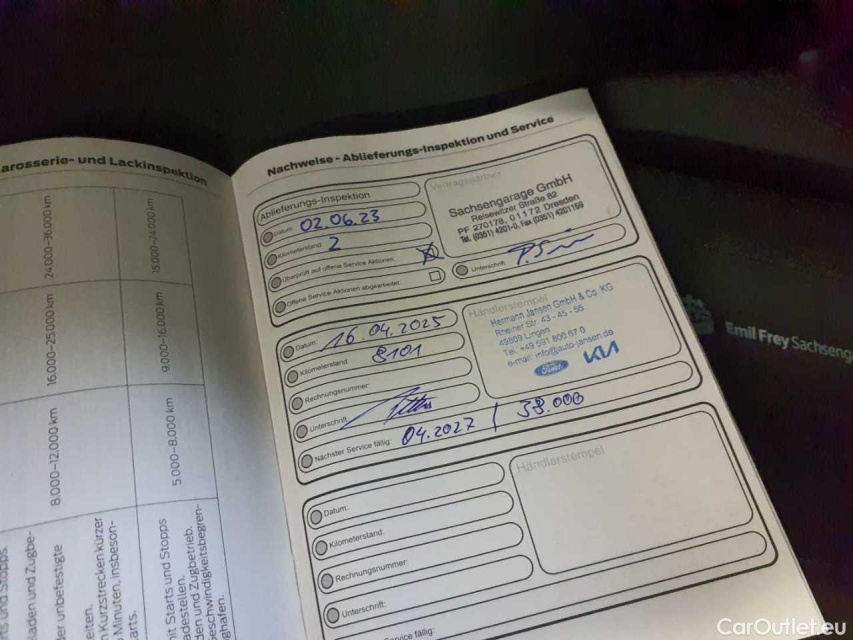 arosserie- und Lackinspektion
24.000–36.000 km
15.000–24.000 km
16.000–25.000 km
9.000–16.000 km
8.000–12.000 km
5.000–8.000 km
s und Stopps
laden und Zugbe-
er unbefestigte
eiten.
n Kurzstrecken kürzer
Minuten, insbeson-
arts.
nit Starts und Stopps
adestellen.
den und Zugbetrieb.
eschwindigkeitsbegren-
ghafen.
Nachweise - Ablieferungs-Inspektion und Service
Ablieferungs-Inspektion
Datum: 02.06.23
Kilometerstand: 2
Überprüft auf offene Service Aktionen.
Offene Service Aktionen abgearbeitet.
Vertragspartner
Sachsengarage GmbH
Reisewitzer Straße 82
PF 270178, 01172 Dresden
Tel. (0351) 4201-0, Fax (0351) 4201159
Unterschrift:
Datum: 16.04.2025
Kilometerstand: 8101
Rechnungsnummer:
Unterschrift:
Nächster Service fällig: 04.2027 / 38.000
Händlerstempel
Hermann Jansen GmbH & Co. KG
Rheiner Str. 43 - 45 - 55
49809 Lingen
Tel. +49 591 800 67 0
e-mail: info@auto-jansen.de
Ford KIA
Datum:
Kilometerstand:
Rechnungsnummer:
Unterschrift:
Service fällig:
Händlerstempel
Emil Frey Sachseng
CarOutlet.eu